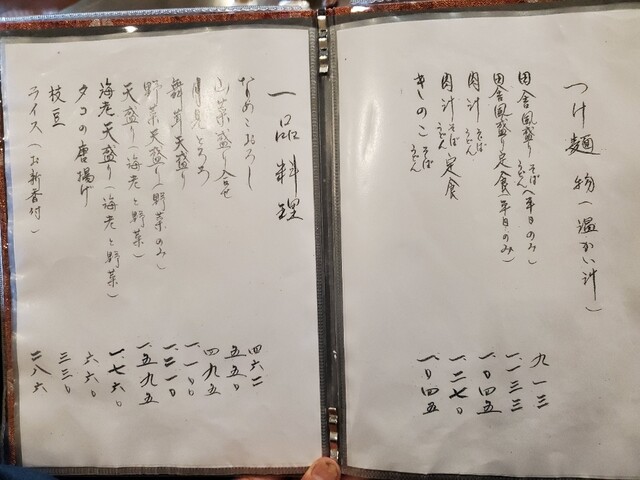 つけ麺物(温かい汁)
田舎風盛り そば うどん(平日のみ) 九一三
田舎風盛り そば うどん 定食(平日のみ) 一、一三三
肉汁 そば うどん 一、〇四五
肉汁 そば うどん 定食 一、二七〇
きのこ そば うどん 一、〇四五
一品料理
なめこおろし 四六二
山菜盛り合せ 五五〇
月見とろろ 四九五
舞茸天盛り 一、一〇〇
野菜天盛り(野菜のみ) 一、二一〇
天盛り(海老と野菜) 一、五九五
海老天盛り(海老と野菜) 一、七六〇
タコの唐揚げ 六六〇
枝豆 三三〇
ライス(お新香付) 二八六